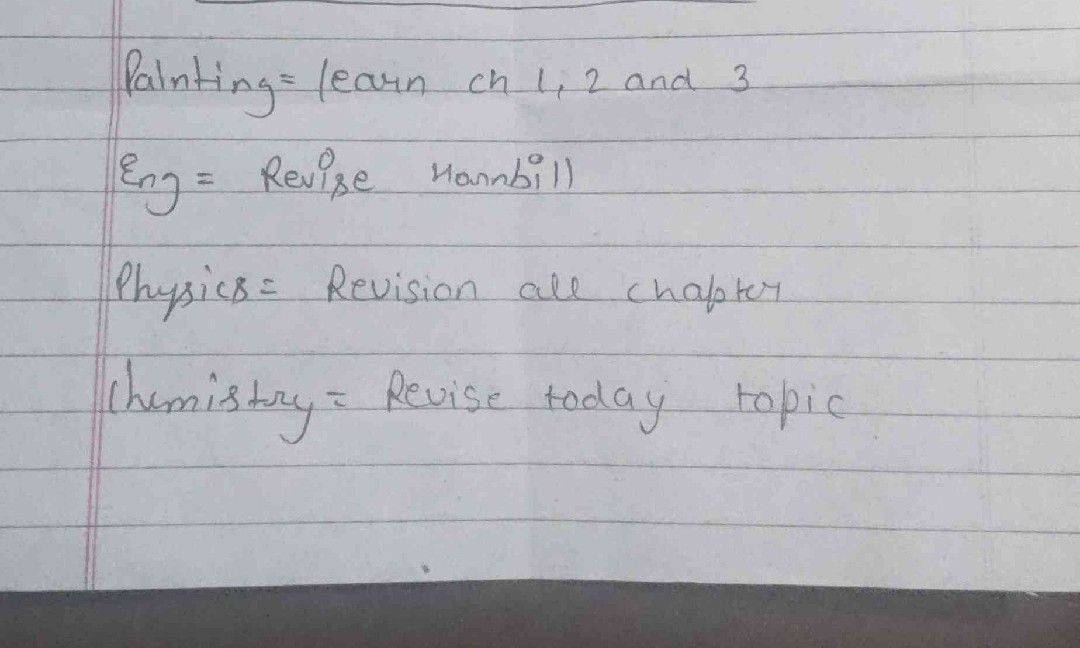 Painting = learn ch 1, 2 and 3
Eng = Revise Hornbill
Physics = Revision all chapter
Chemistry = Revise today topic